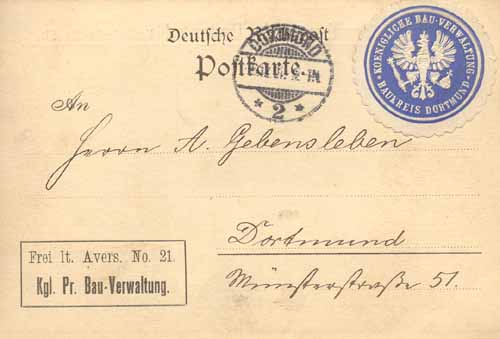 Deutsche Reichspost
Postkarte
DORTMUND
* 2 *
KOENIGLICHE BAU-VERWALTUNG
* BAUKREIS DORTMUND *
An
Herrn A. Gebensleben
Dortmund
Münsterstraße 51.
Frei lt. Avers. No. 21.
Kgl. Pr. Bau-Verwaltung.